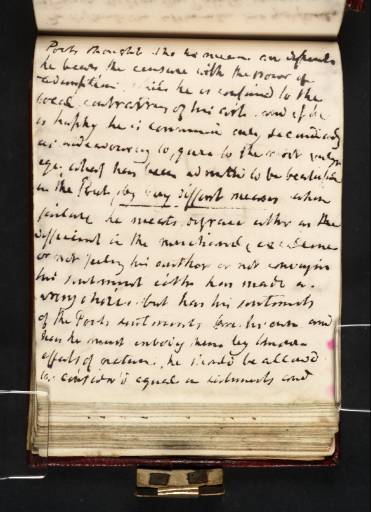 Poets thought tho the means are different
he bears the censure with the power of
redemption. while he is confined to the
local contraction of his art. and if he
is happy he is commixin only secondarily
as endeavouring to give to the
eye, what has been admitted to be beautiful
in the Poet, by very different means when
failure he meets disgrace either as the
difficient in the mechanical excellence
or not feeling his author or not conveying
his sentiment either has made a
wrong choice. but has his sentiments
of the Poets sentiments his own and
then he must embody them by
effects of nature. he should be allowed
consider'd equal in sentiments and